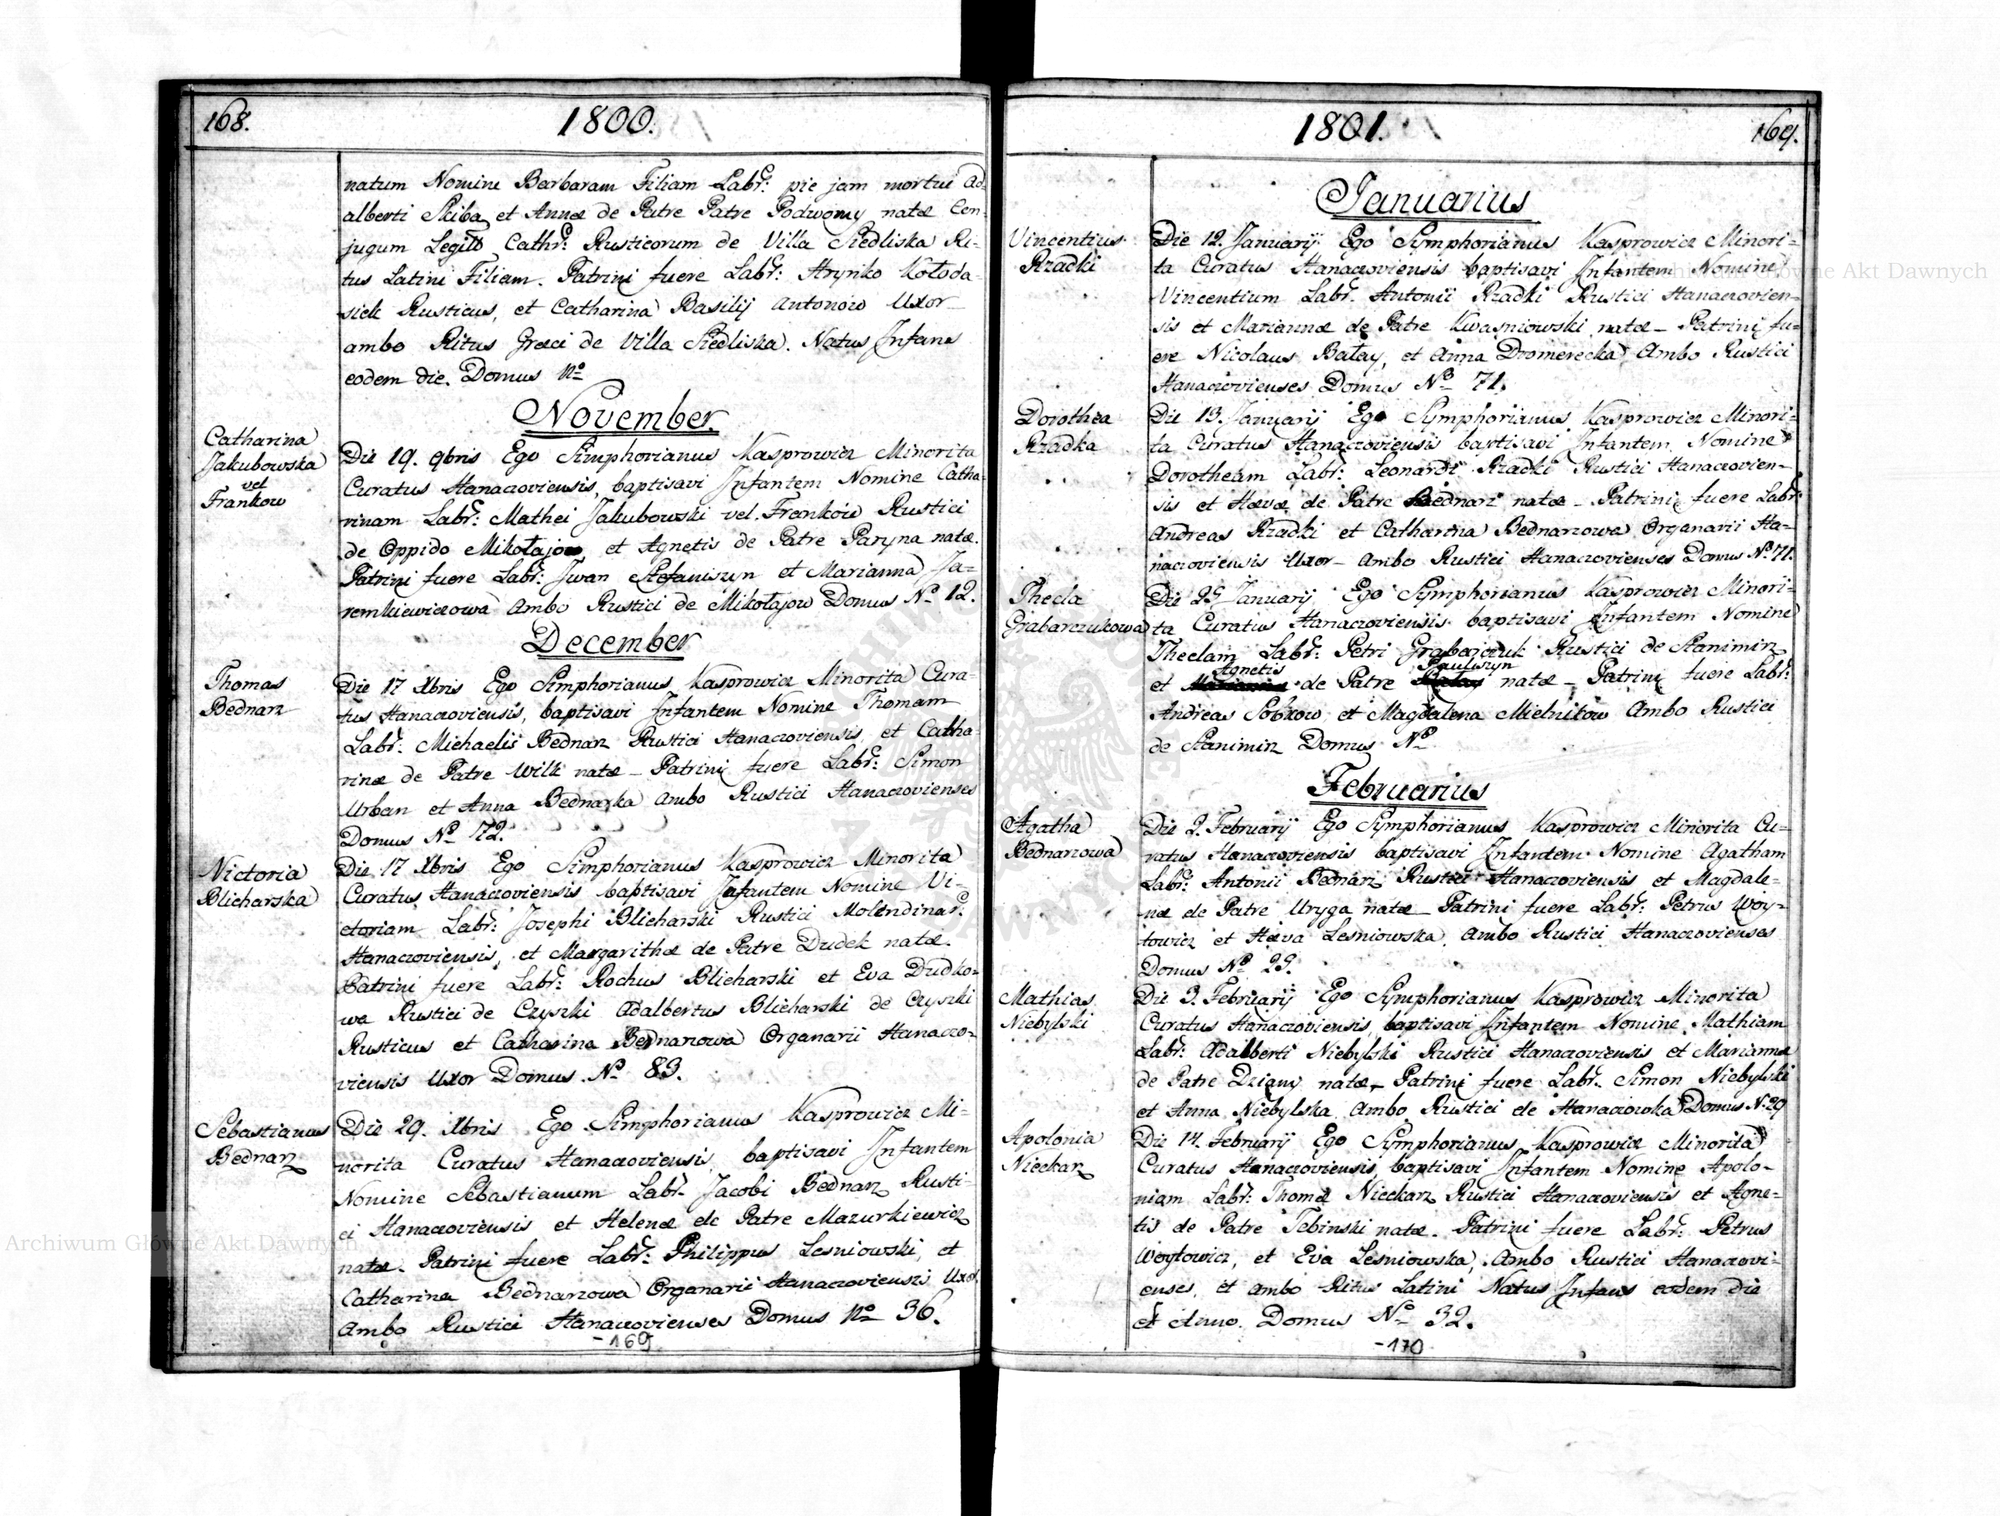 168.
1800.
natum Nomine Barbaram Filiam Labr: pie jam mortui Ad-
alberti Skiba et Annæ de Patre Patre Podwomy natæ Con-
jugum Legit Cathr: Rusticorum de Villa Siedliska Ri-
tus Latini Filiam. Patrini fuere Labr: Hryńko Kołoda-
siek Rusticus, et Catharina Basilij Antonow Uxor
ambo Ritus Græci de Villa Siedliska. Natus Infans
eodem die. Domus No
November.
Catharina
Jakubowska
vel
Frankow
Die 19. 9bris Ego Simphorianus Kasprowicz Minorita
Curatus Hanaczoviensis, baptisavi Infantem Nomine Catha-
rinam Labr: Mathei Jakubowski vel Franków Rustici
de Oppido Mikołajow, et Agnetis de Patre Paryna natæ.
Patrini fuere Labr: Iwan Stefaniszyn et Marianna Ja-
remkiewiczowa Ambo Rustici de Mikołajow Domus No 12.
December
Thomas
Bednarz
Die 17 Xbris Ego Simphorianus Kasprowicz Minorita Cura-
tus Hanaczoviensis, baptisavi Infantem Nomine Thomam
Labr: Michaelis Bednarz Rustici Hanaczoviensis et Catha-
rinæ de Patre Wilk natæ – Patrini fuere Labr: Simon
Urban et Anna Bednarzka ambo Rustici Hanaczovienses
Domus No 72.
Victoria
Blicharska
Die 17 Xbris Ego Simphorianus Kasprowicz Minorita
Curatus Hanaczoviensis baptisavi Infantem Nomine Vi-
ctoriam Labr: Josephi Blicharski Rustici Molendinar:
Hanaczoviensis, et Margarithæ de Patre Dudek natæ.
Patrini fuere Labr: Rochus Blicharski et Eva Dudko-
wa Rustici de Czyszki Adalbertus Blicharski de Czyszki
Rusticus et Catharina Bednarzowa Organarii Hanaczo-
viensis Uxor Domus No 83.
Sebastianus
Bednarz
Die 29. Xbris Ego Simphorianus Kasprowicz Mi-
norita Curatus Hanaczoviensis, baptisavi Infantem
Nomine Sebastianum Labr. Jacobi Bednarz Rusti-
ci Hanaczoviensis et Helenæ de Patre Mazurkiewicz
natæ. Patrini fuere Labr: Philippus Lesniowski, et
Catharina Bednarzowa Organarii Hanaczoviensis Uxor
Ambo Rustici Hanaczovienses Domus No 36.
-169
1801.
169.
Januarius
Vincentius
Rzadki
Die 12. Januarij Ego Symphorianus Kasprowicz Minori-
ta Curatus Hanaczoviensis baptisavi Infantem Nomine
Vincentium Labr. Antonii Rzadki Rustici Hanaczovien-
sis et Mariannæ de Patre Kwasniowski natæ – Patrini fu-
ere Nicolaus Bałay, et Anna Dromerecka Ambo Rustici
Hanaczovienses Domus No 71.
Dorothea
Rzadka
Die 13. Januarij Ego Symphorianus Kasprowicz Minori-
ta Curatus Hanaczoviensis baptisavi Infantem Nomine
Dorotheam Labr: Leonardi Rzadki Rustici Hanaczovien-
sis et Hævæ de Patre Bednarz natæ – Patrini fuere Labr:
Andreas Rzadki et Catharina Bednarzowa Organarii Ha-
naczoviensis Uxor – Ambo Rustici Hanaczovienses Domus No 71.
Thecla
Grabarczukowa
Die 25 Januarij Ego Symphorianus Kasprowicz Minori-
ta Curatus Hanaczoviensis baptisavi Infantem Nomine
Theclam Labr: Petri Grabarczuk Rustici de Stanimirz
Agnetis Pauliszyn
et de Patre natæ – Patrini fuere Labr:
Andreas Sobkow et Magdalena Mielnikow Ambo Rustici
de Stanimirz Domus No
Februarius
Agatha
Bednarzowa
Die 2. Februarij Ego Symphorianus Kasprowicz Minorita Cu-
ratus Hanaczoviensis baptisavi Infantem Nomine Agatham
Labr: Antonii Bednarz Rustici Hanaczoviensis et Magdale-
næ de Patre Uryga natæ – Patrini fuere Labr: Petrus Woy-
towicz et Hæva Lesniowska, Ambo Rustici Hanaczovienses
Domus No 25.
Mathias
Niebylski
Die 3. Februarij Ego Symphorianus Kasprowicz Minorita
Curatus Hanaczoviensis baptisavi Infantem Nomine Mathiam
Labr: Adalberti Niebylski Rustici Hanaczoviensis et Mariannæ
de Patre Dziany natæ – Patrini fuere Labr. Simon Niebylski
et Anna Niebylska Ambo Rustici de Hanaczowka Domus No 29
Apolonia
Nieckarz
Die 14. Februarij Ego Symphorianus Kasprowicz Minorita
Curatus Hanaczoviensis, baptisavi Infantem Nomine Apolo-
niam Labr: Thomæ Nieckarz Rustici Hanaczoviensis et Agne-
tis de Patre Tebinski natæ. Patrini fuere Labr: Petrus
Woytowicz, et Eva Lesniowska, Ambo Rustici Hanaczovi-
enses, et ambo Ritus Latini Natus Infans eodem die
et Anno. Domus No 32.
-170
Archiwum Główne Akt Dawnych
Archiwum Główne Akt Dawnych